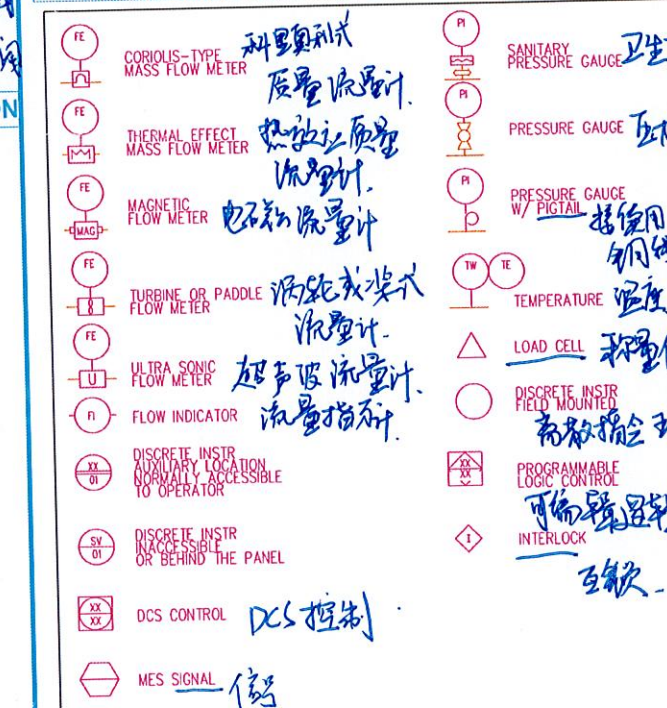 FE
CORIOLIS-TYPE
MASS FLOW METER
科里奥利式
质量流量计.
FE
THERMAL EFFECT
MASS FLOW METER
热效应质量
流量计.
FE
MAG
MAGNETIC
FLOW METER
电磁流量计
FE
TURBINE OR PADDLE
FLOW METER
涡轮或桨式
流量计.
FE
U
ULTRA SONIC
FLOW METER
超声波流量计.
FI
FLOW INDICATOR
流量指示计.
XX
01
DISCRETE INSTR
AUXILIARY LOCATION
NORMALLY ACCESSIBLE
TO OPERATOR
SV
01
DISCRETE INSTR
INACCESSIBLE
OR BEHIND THE PANEL
XX
XX
DCS CONTROL
DCS控制
MES SIGNAL
信号
PI
SANITARY
PRESSURE GAUGE
卫生
PI
PRESSURE GAUGE
PI
PRESSURE GAUGE
W/ PIGTAIL
接使用
TW
TE
TEMPERATURE
温度
LOAD CELL
称量
DISCRETE INSTR
FIELD MOUNTED
离散指令
XX
XX
PROGRAMMABLE
LOGIC CONTROL
可编辑逻辑
I
INTERLOCK
互锁